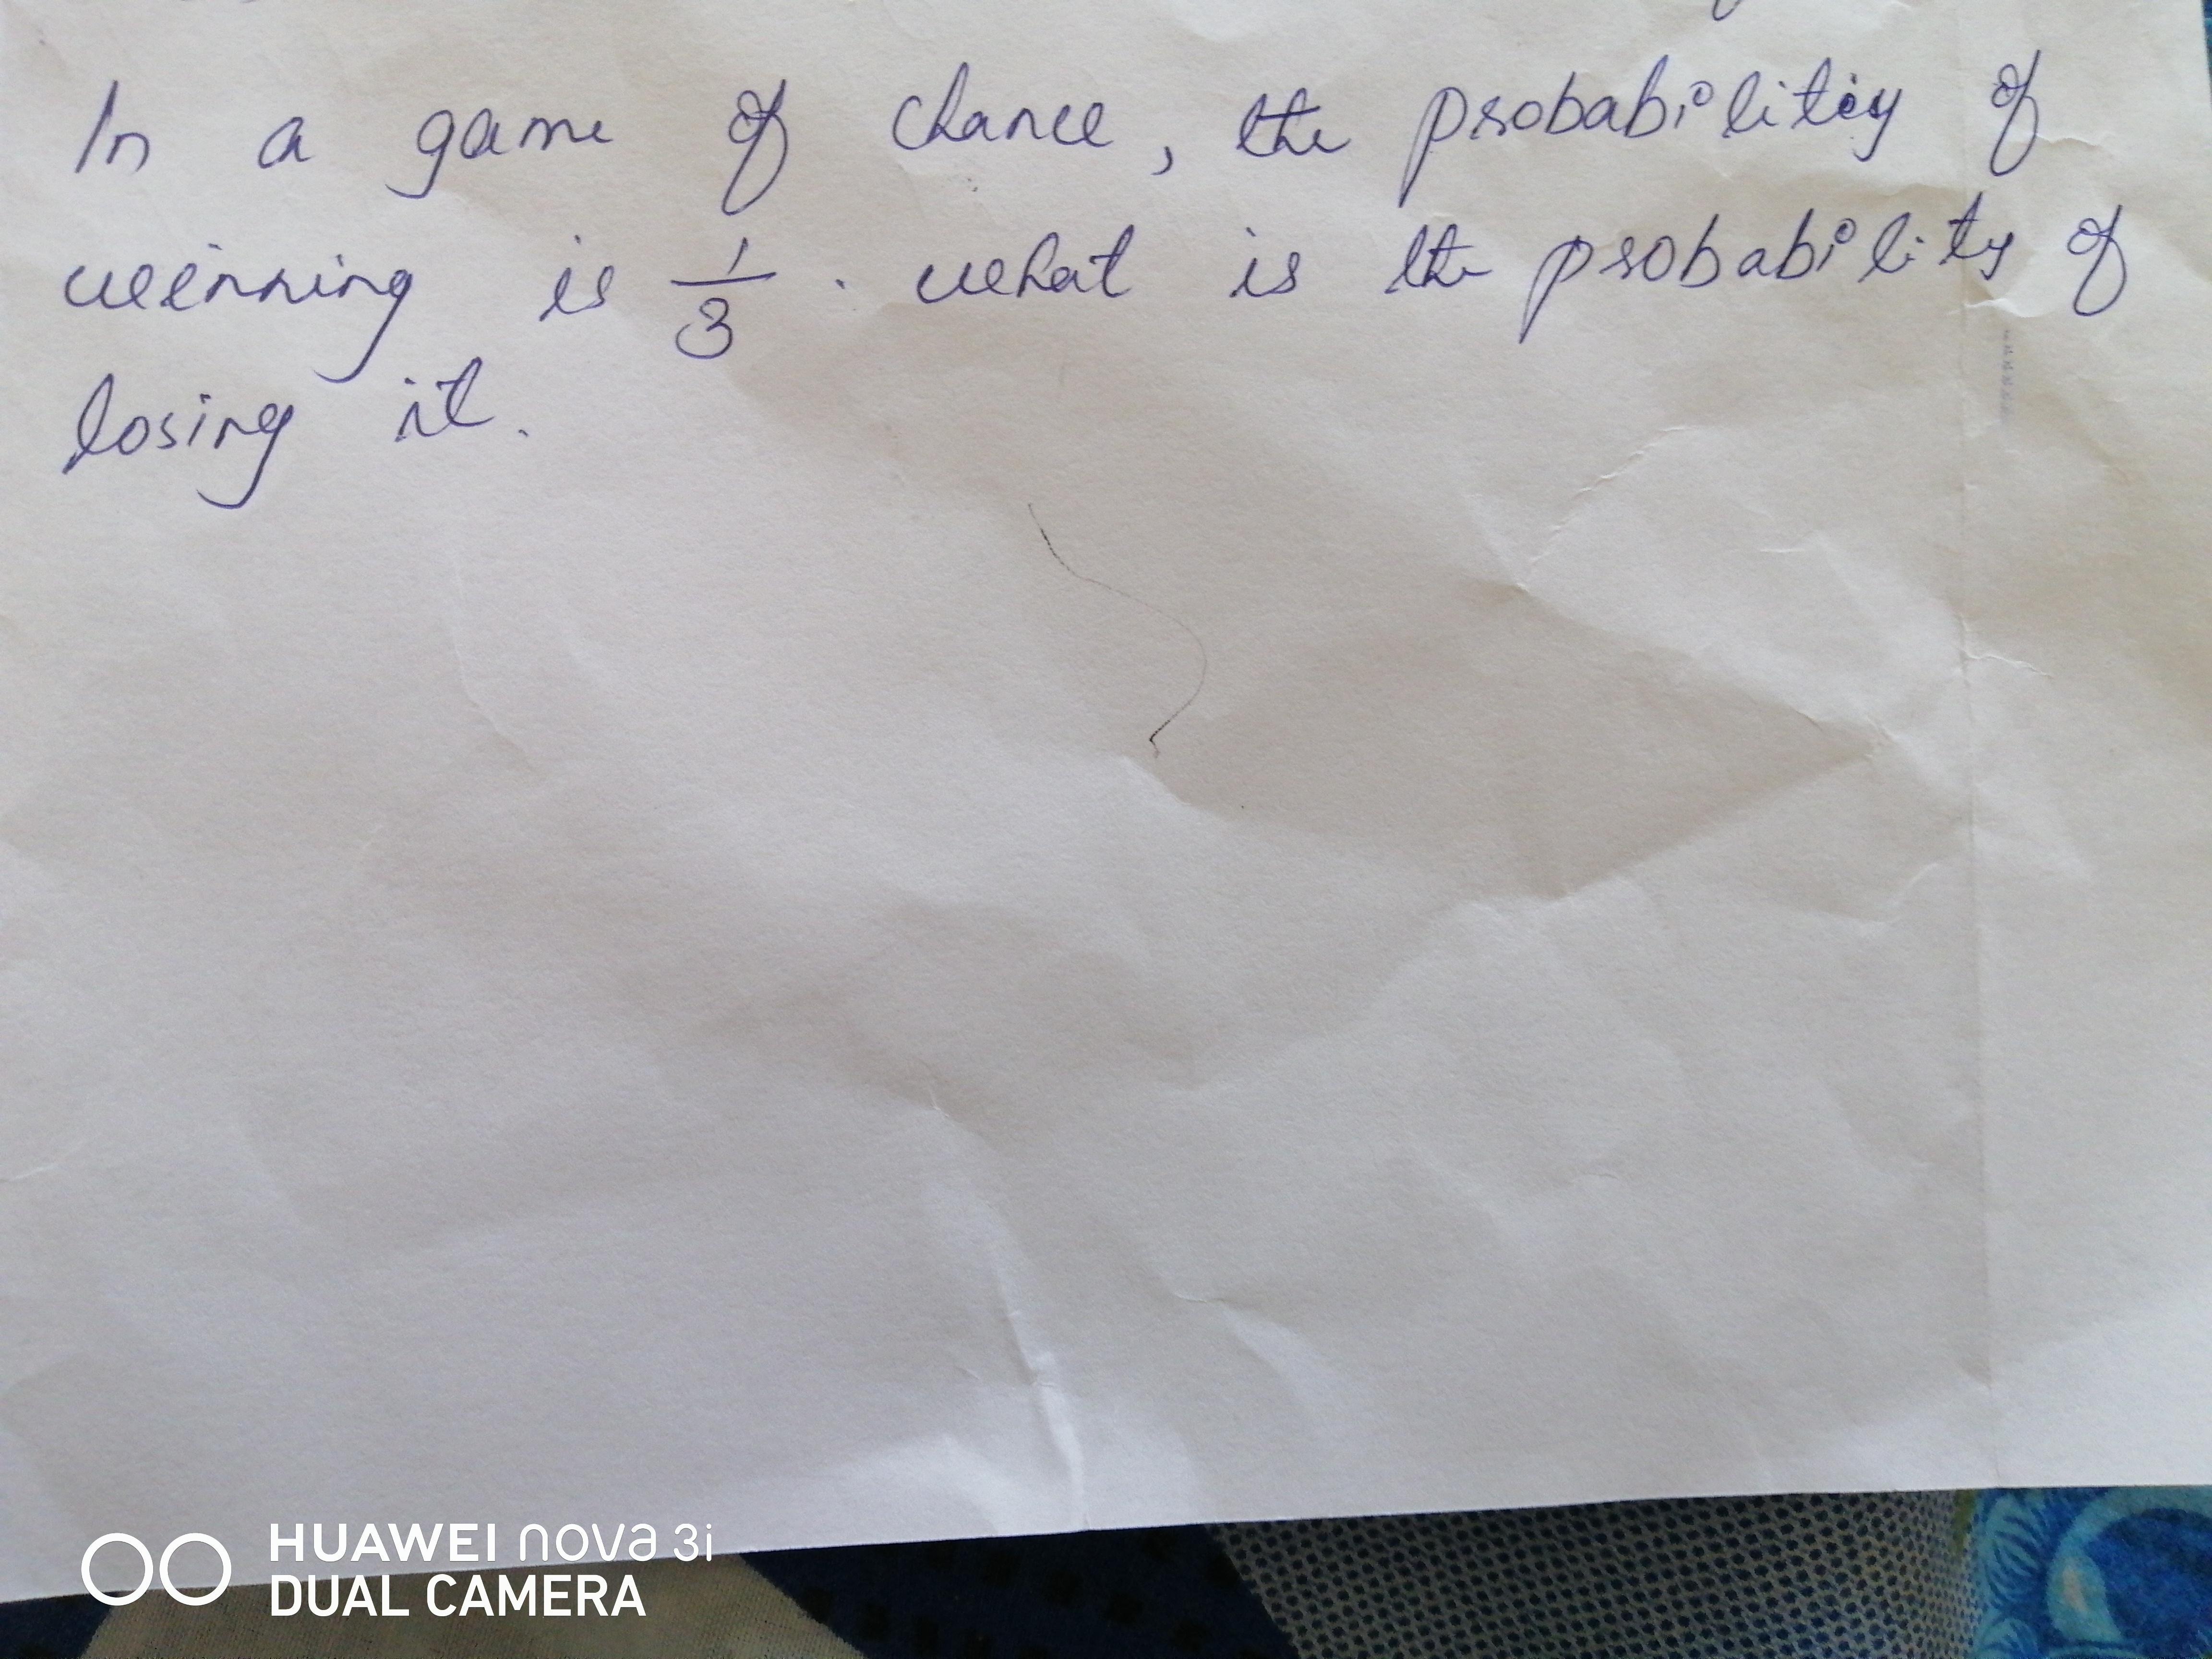 In a game of chance, the probabilitiy of
winning is 1/3. what is the probability of
losing it.
HUAWEI nova 3i
DUAL CAMERA